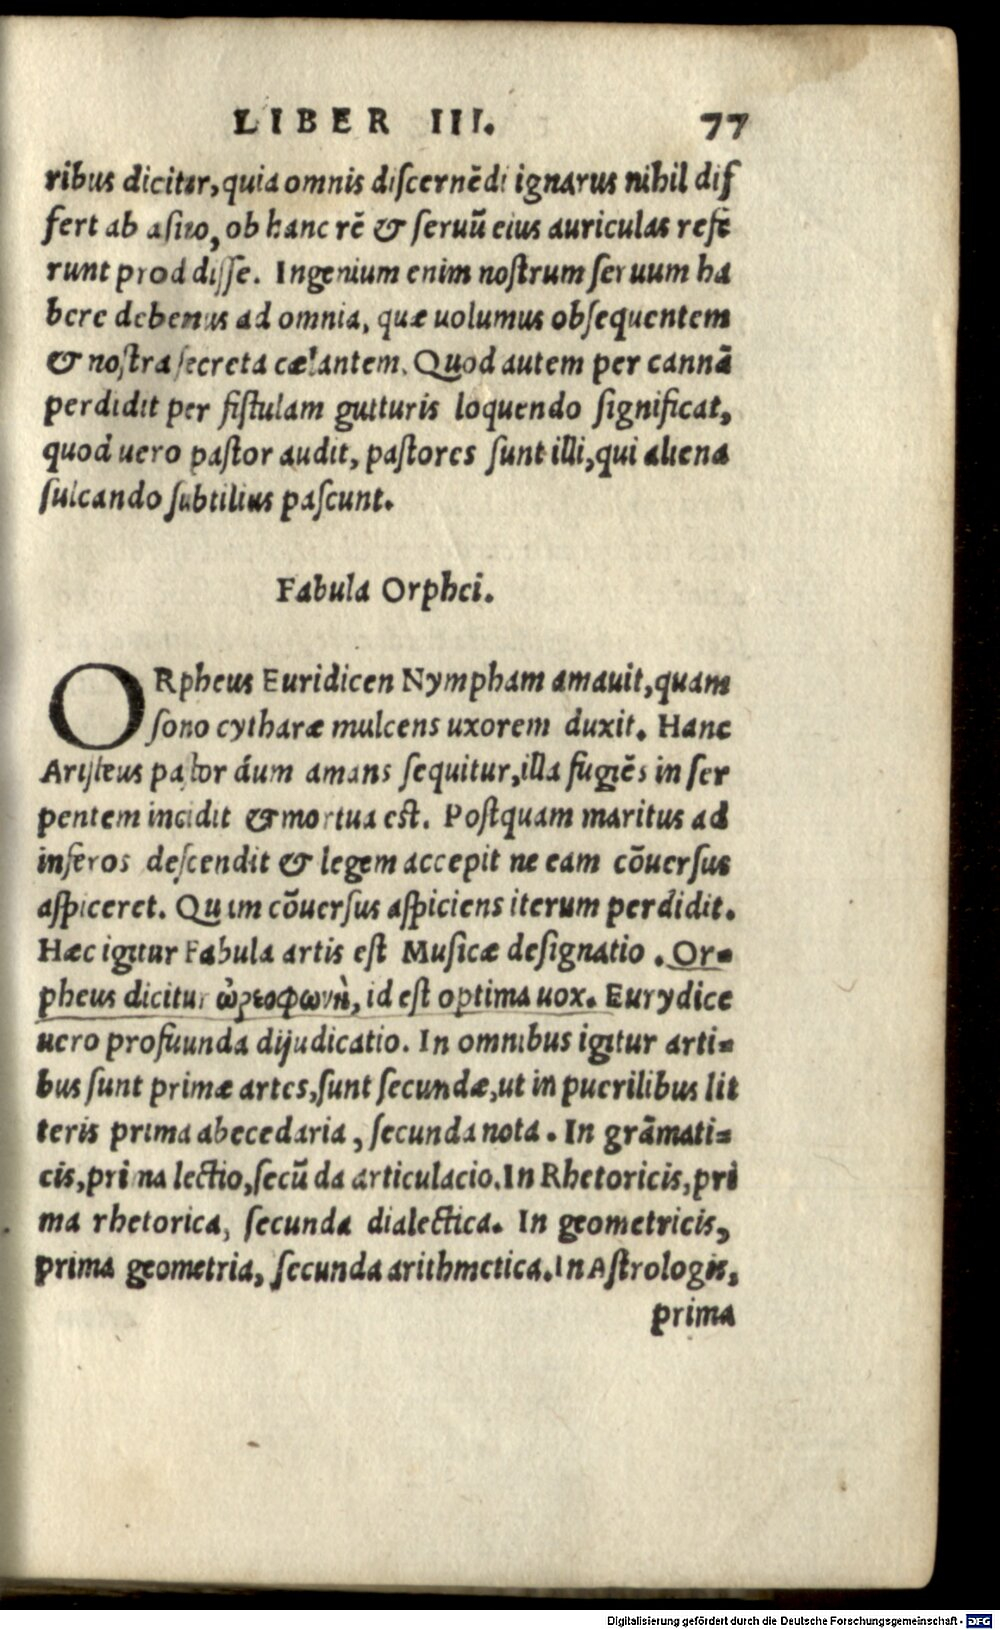 LIBER III. 77
ribus dicitur, quia omnis discernēdi ignarus nihil dif
fert ab asino, ob hanc rē & seruū eius auriculas refe
runt prodidisse. Ingenium enim nostrum seruum ha
bere debemus ad omnia, quæ uolumus obsequentem
& nostra secreta cælantem. Quod autem per cannā
perdidit per fistulam gutturis loquendo significat,
quod uero pastor audit, pastores sunt illi, qui aliena
sulcando subtilius pascunt.
Fabula Orphei.
ORpheus Euridicen Nympham amauit, quam
sono cytharæ mulcens uxorem duxit. Hanc
Aristeus pastor dum amans sequitur, illa fugiēs in ser
pentem incidit & mortua est. Postquam maritus ad
inferos descendit & legem accepit ne eam cōuersus
aspiceret. Quam cōuersus aspiciens iterum perdidit.
Hæc igitur Fabula artis est Musicæ designatio. Or-
pheus dicitur id est optima uox. Eurydice
uero profuunda dijudicatio. In omnibus igitur arti-
bus sunt primæ artes, sunt secundæ, ut in puerilibus lit
teris prima abecedaria, secunda nota. In grāmati-
cis, prima lectio, secūda articulacio. In Rhetoricis, pri
ma rhetorica, secunda dialectica. In geometricis,
prima geometria, secunda arithmetica. In Astrologis,
prima
Digitalisierung gefördert durch die Deutsche Forschungsgemeinschaft - DFG